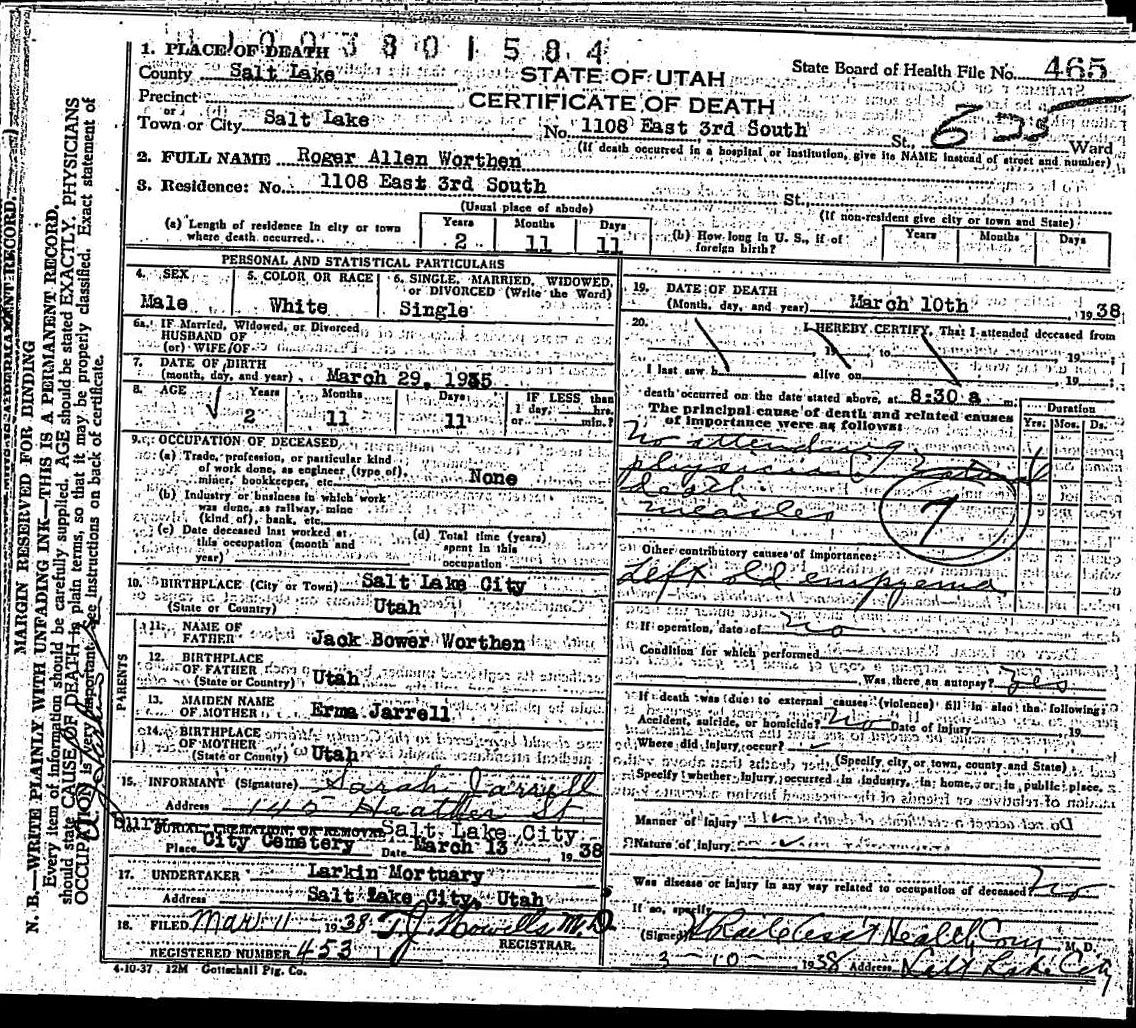 1003801584
1. PLACE OF DEATH
County Salt Lake
STATE OF UTAH
State Board of Health File No. 465
Precinct
or
CERTIFICATE OF DEATH
Town or City Salt Lake No. 1108 East 3rd South St., Ward
(If death occurred in a hospital or institution, give its NAME instead of street and number)
2. FULL NAME Roger Allen Worthen
3. Residence: No. 1108 East 3rd South St.
(Usual place of abode)
(If non-resident give city or town and State)
(a) Length of residence in city or town where death occurred. Years 2 Months 11 Days 11
(b) How long in U. S., if of foreign birth? Years Months Days
PERSONAL AND STATISTICAL PARTICULARS
4. SEX Male
5. COLOR OR RACE White
6. SINGLE, MARRIED, WIDOWED, or DIVORCED (Write the Word) Single
6a. If Married, Widowed, or Divorced
HUSBAND OF
(or) WIFE OF
7. DATE OF BIRTH
(month, day, and year) March 29, 1935
8. AGE Years 2 Months 11 Days 11
IF LESS than
1 day, hrs.
or min.?
9. OCCUPATION OF DECEASED
(a) Trade, profession, or particular kind
of work done, as engineer (type of),
miner, bookkeeper, etc. None
(b) Industry or business in which work
was done, as railway, mine
(kind of), bank, etc.
(c) Date deceased last worked at
this occupation (month and
year)
(d) Total time (years)
spent in this
occupation
10. BIRTHPLACE (City or Town) Salt Lake City
(State or Country) Utah
PARENTS
11. NAME OF
FATHER Jack Bower Worthen
12. BIRTHPLACE
OF FATHER
(State or Country) Utah
13. MAIDEN NAME
OF MOTHER Erma Jarrell
14. BIRTHPLACE
OF MOTHER
(State or County) Utah
15. INFORMANT (Signature) Sarah Jarrell
Address 140 Heather St.
16. BURIAL, CREMATION, OR REMOVAL Salt Lake City
Place City Cemetery Date March 13 1938
17. UNDERTAKER Larkin Mortuary
Address Salt Lake City, Utah
18. FILED Mar 11 1938 T.J. Howells M.D.
REGISTRAR.
REGISTERED NUMBER 453
4-10-37 12M Gottschall Ptg. Co.
19. DATE OF DEATH
(Month, day, and year) March 10th 1938
20. I HEREBY CERTIFY, That I attended deceased from
19 , to 19 ;
I last saw h alive on 19 ;
death occurred on the date stated above, at 8:30 a m.
The principal cause of death and related causes
of importance were as follows:
Duration
Yrs. Mos. Ds.
No attending
physician
death
measles
7
Other contributory causes of importance:
Left old empyema
If operation, date of No
Condition for which performed
Was there an autopsy? Yes
If death was (due) to external causes (violence) fill in also the following:
Accident, suicide, or homicide? No Date of injury , 19
Where did injury occur?
(Specify city, or town, county and State)
Specify whether injury occurred in industry, in home, or in public place.
Manner of injury
Nature of injury
Was disease or injury in any way related to occupation of deceased? No
If so, specify
(Signed) Asst Health Com M. D.
3-10-1938 Address Salt Lake City
MARGIN RESERVED FOR BINDING
N. B.—WRITE PLAINLY WITH UNFADING INK—THIS IS A PERMANENT RECORD.
Every item of information should be carefully supplied. AGE should be stated EXACTLY. PHYSICIANS
should state CAUSE OF DEATH in plain terms, so that it may be properly classified. Exact statement of
OCCUPATION is very important. See instructions on back of certificate.